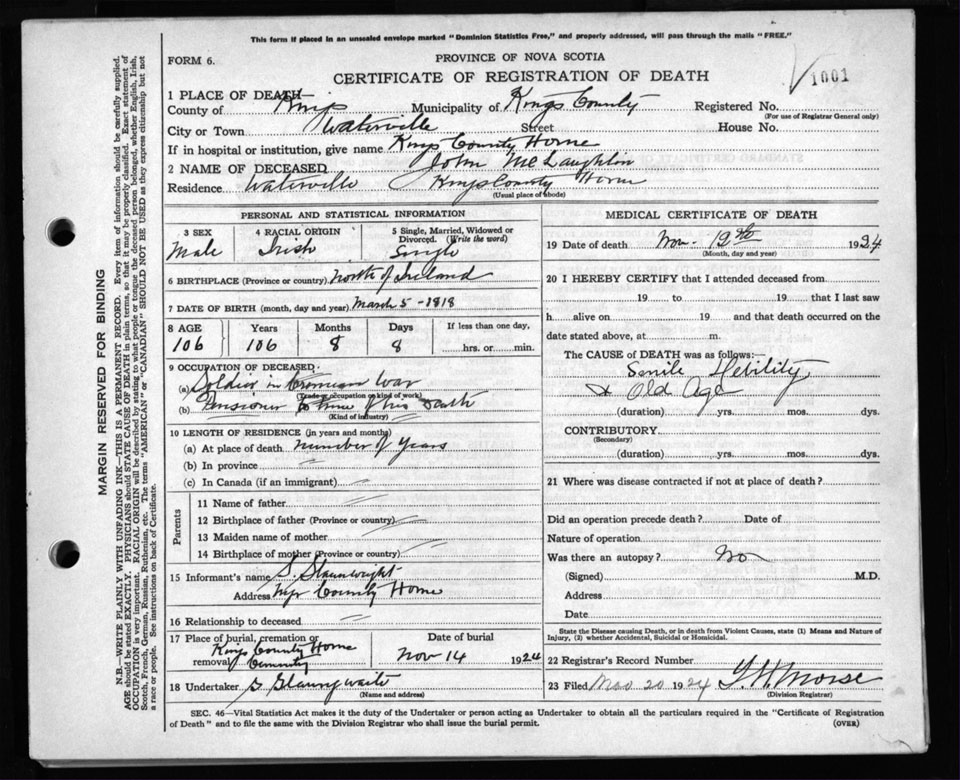 This form if placed in an unsealed envelope marked "Dominion Statistics Free," and properly addressed, will pass through the mails "FREE."
FORM 6.
PROVINCE OF NOVA SCOTIA
CERTIFICATE OF REGISTRATION OF DEATH
1001
1 PLACE OF DEATH
County of Kings Municipality of Kings County Registered No.
(For use of Registrar General only)
City or Town Waterville Street House No.
If in hospital or institution, give name Kings County Home
2 NAME OF DECEASED John McLaughlin
Residence Waterville Kings County Home
(Usual place of abode)
PERSONAL AND STATISTICAL INFORMATION
3 SEX 4 RACIAL ORIGIN 5 Single, Married, Widowed or Divorced. (Write the word)
Male Irish Single
6 BIRTHPLACE (Province or country) North of Ireland
7 DATE OF BIRTH (month, day and year) March 5-1818
8 AGE Years Months Days If less than one day,
106 106 8 8 hrs. or min.
9 OCCUPATION OF DECEASED
(a) Soldier in Crimean War
(Trade or occupation or kind of work)
(b) Pensioner to time of his death
(Kind of industry)
10 LENGTH OF RESIDENCE (in years and months)
(a) At place of death number of years
(b) In province
(c) In Canada (if an immigrant)
Parents
11 Name of father
12 Birthplace of father (Province or country)
13 Maiden name of mother
14 Birthplace of mother (Province or country)
15 Informant's name S.
Address County Home
16 Relationship to deceased
17 Place of burial, cremation or removal Kings County Home Cemetery
Date of burial
Nov 14 1924
18 Undertaker
(Name and address)
MEDICAL CERTIFICATE OF DEATH
19 Date of death Nov. 12th 1924
(Month, day and year)
20 I HEREBY CERTIFY that I attended deceased from
19 to 19 that I last saw
h alive on 19 and that death occurred on the
date stated above, at m.
The CAUSE OF DEATH was as follows:
Senile Debility
& Old Age
(duration) yrs. mos. dys.
CONTRIBUTORY
(Secondary)
(duration) yrs. mos. dys.
21 Where was disease contracted if not at place of death?
Did an operation precede death? Date of
Nature of operation
Was there an autopsy? No
(Signed) M.D.
Address
Date
State the Disease causing Death, or in death from Violent Causes, state (1) Means and Nature of
Injury, (2) whether Accidental, Suicidal or Homicidal.
22 Registrar's Record Number
23 Filed Nov 20 1924 Morse
(Division Registrar)
SEC. 46—Vital Statistics Act makes it the duty of the Undertaker or person acting as Undertaker to obtain all the particulars required in the "Certificate of Registration
of Death" and to file the same with the Division Registrar who shall issue the burial permit.
(OVER)
MARGIN RESERVED FOR BINDING
N.B.—WRITE PLAINLY WITH UNFADING INK—THIS IS A PERMANENT RECORD. Every item of information should be carefully supplied.
AGE should be stated EXACTLY. PHYSICIANS should STATE CAUSE OF DEATH in plain terms, so that it may be properly classified. Exact statement of
OCCUPATION is very important. RACIAL ORIGIN will be described by stating to what people or tongue the deceased person belonged, whether English, Irish,
Scotch, French, German, Russian, Ruthenian, etc. The terms "AMERICAN" or "CANADIAN" SHOULD NOT BE USED as they express citizenship but not
a race or people. See instructions on back of Certificate.